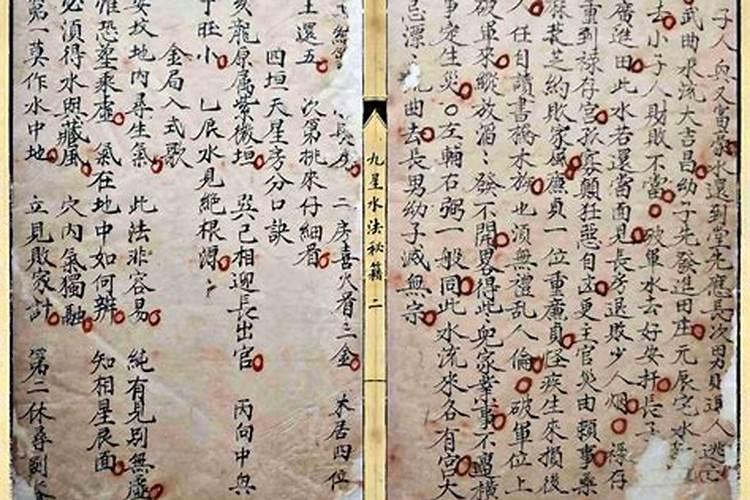 子人與又富家水還到堂先應長次男
武曲水流大吉昌幼子先發進田庄元辰宅水
去小子人財敗不當破軍水去好安扦長子
廣進田此水若還當面見長房退敗少人烟祿存
重到祿存宮孤寡顛狂惡自凶更主官災由類事
栽芝約敗家風廉貞一位重廉貞怪疾生來損後
人任自讀書禍木族也須無禮亂人倫破軍位上
破軍來縱放溫發不開畧得此兇家業事不
事定生災左輔右弼一般同此水流來各有宮大
忌漂曲去長男幼子滅無宗
九星水法秘籍 二
二房喜火看三金 本居四位
土還五 次第挑來仔細看
四垣天星分口訣
亥龍原屬紫微垣 巽已相迎長出官 丙向中與
旺小 乙辰水見絕根源
金局入式歌
安坟地內尋生氣 此法非容易 純有見別無虛
惟恐塋乘虛 氣在地中如何辨 知相星辰面
必須得水與藏風 穴內氣獨融
第一莫作水中地 立見敗家計 第二休尋劍